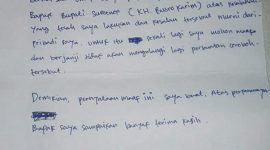 Bapak Bupati Sumenep (KH. Busro Karim) atas
yang telah saya lakukan dan kesalahan tersebut murni dari
Pribadi saya, untuk itu sekali lagi saya mohon maaf
dan berjanji tidak akan mengulangi lagi perbuatan ceroboh
tersebut.
Demikian, pernyataan maaf ini saya buat. Atas
Bapak saya sampaikan banyak terima kasih.